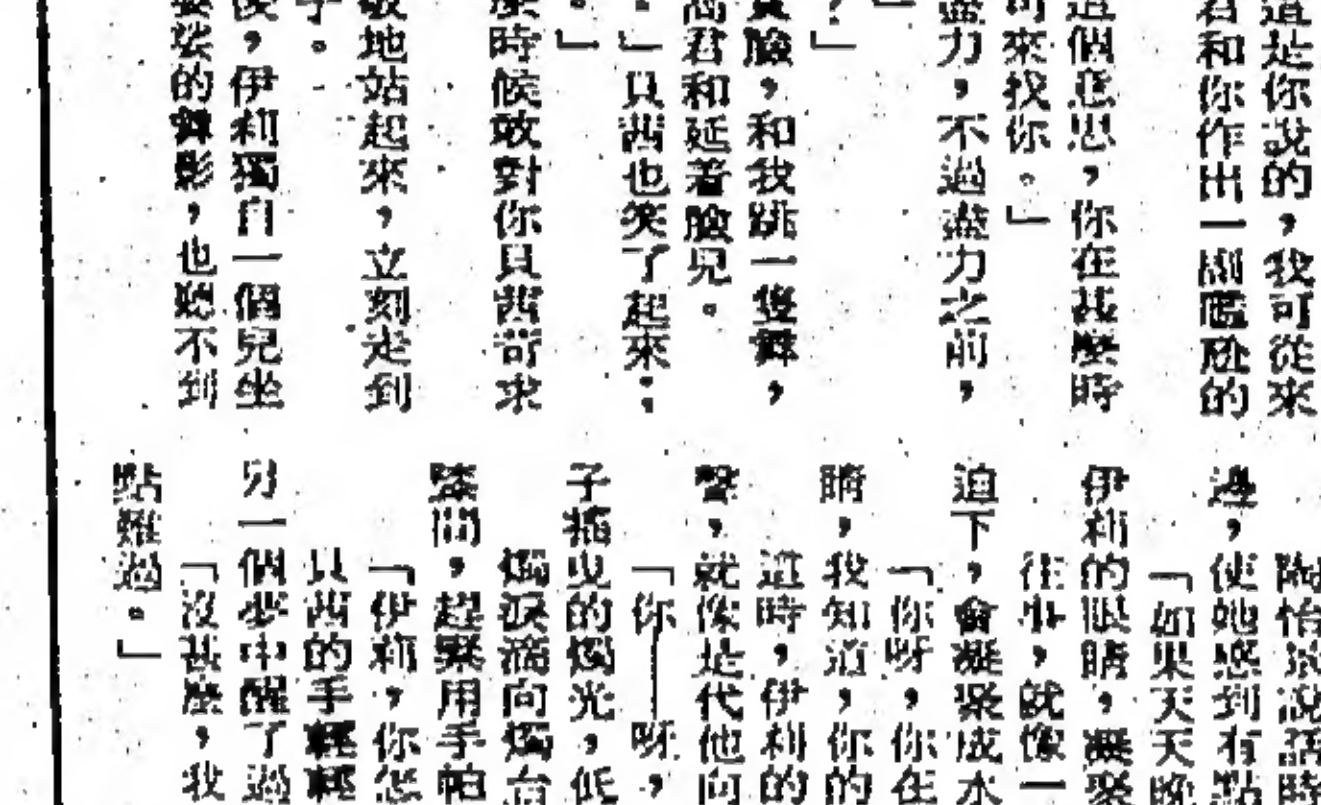 道是你說的，我可從來
君和你作出一副尷尬的
這個意思，你在甚麼時
可來找你。」
盡力，不過盡力之前，
」
？」
賓臉，和我跳一隻舞，
高君和延着臉兒。
。」貝茜也笑了起來：
。」
麼時候敢對你貝茜苛求
敬地站起來，立刻走到
子。
後，伊莉獨自一個兒坐
婆娑的舞影，也聽不到
陶怡 說話時
邊，使她感到有點
「如果天天晚
伊莉的眼睛，凝聚
往事，就像一
迫下，會凝聚成水
「你呀，你在
睛，我知道，你的
這時，伊莉的
聲，就像是代他向
「你——呀，
子搖曳的燭光，低
燭淚滴向燭台
膝間，趕緊用手帕
「伊莉，你怎
貝茜的手輕輕
另一個夢中醒了過
「沒甚麼，我
點難過。」